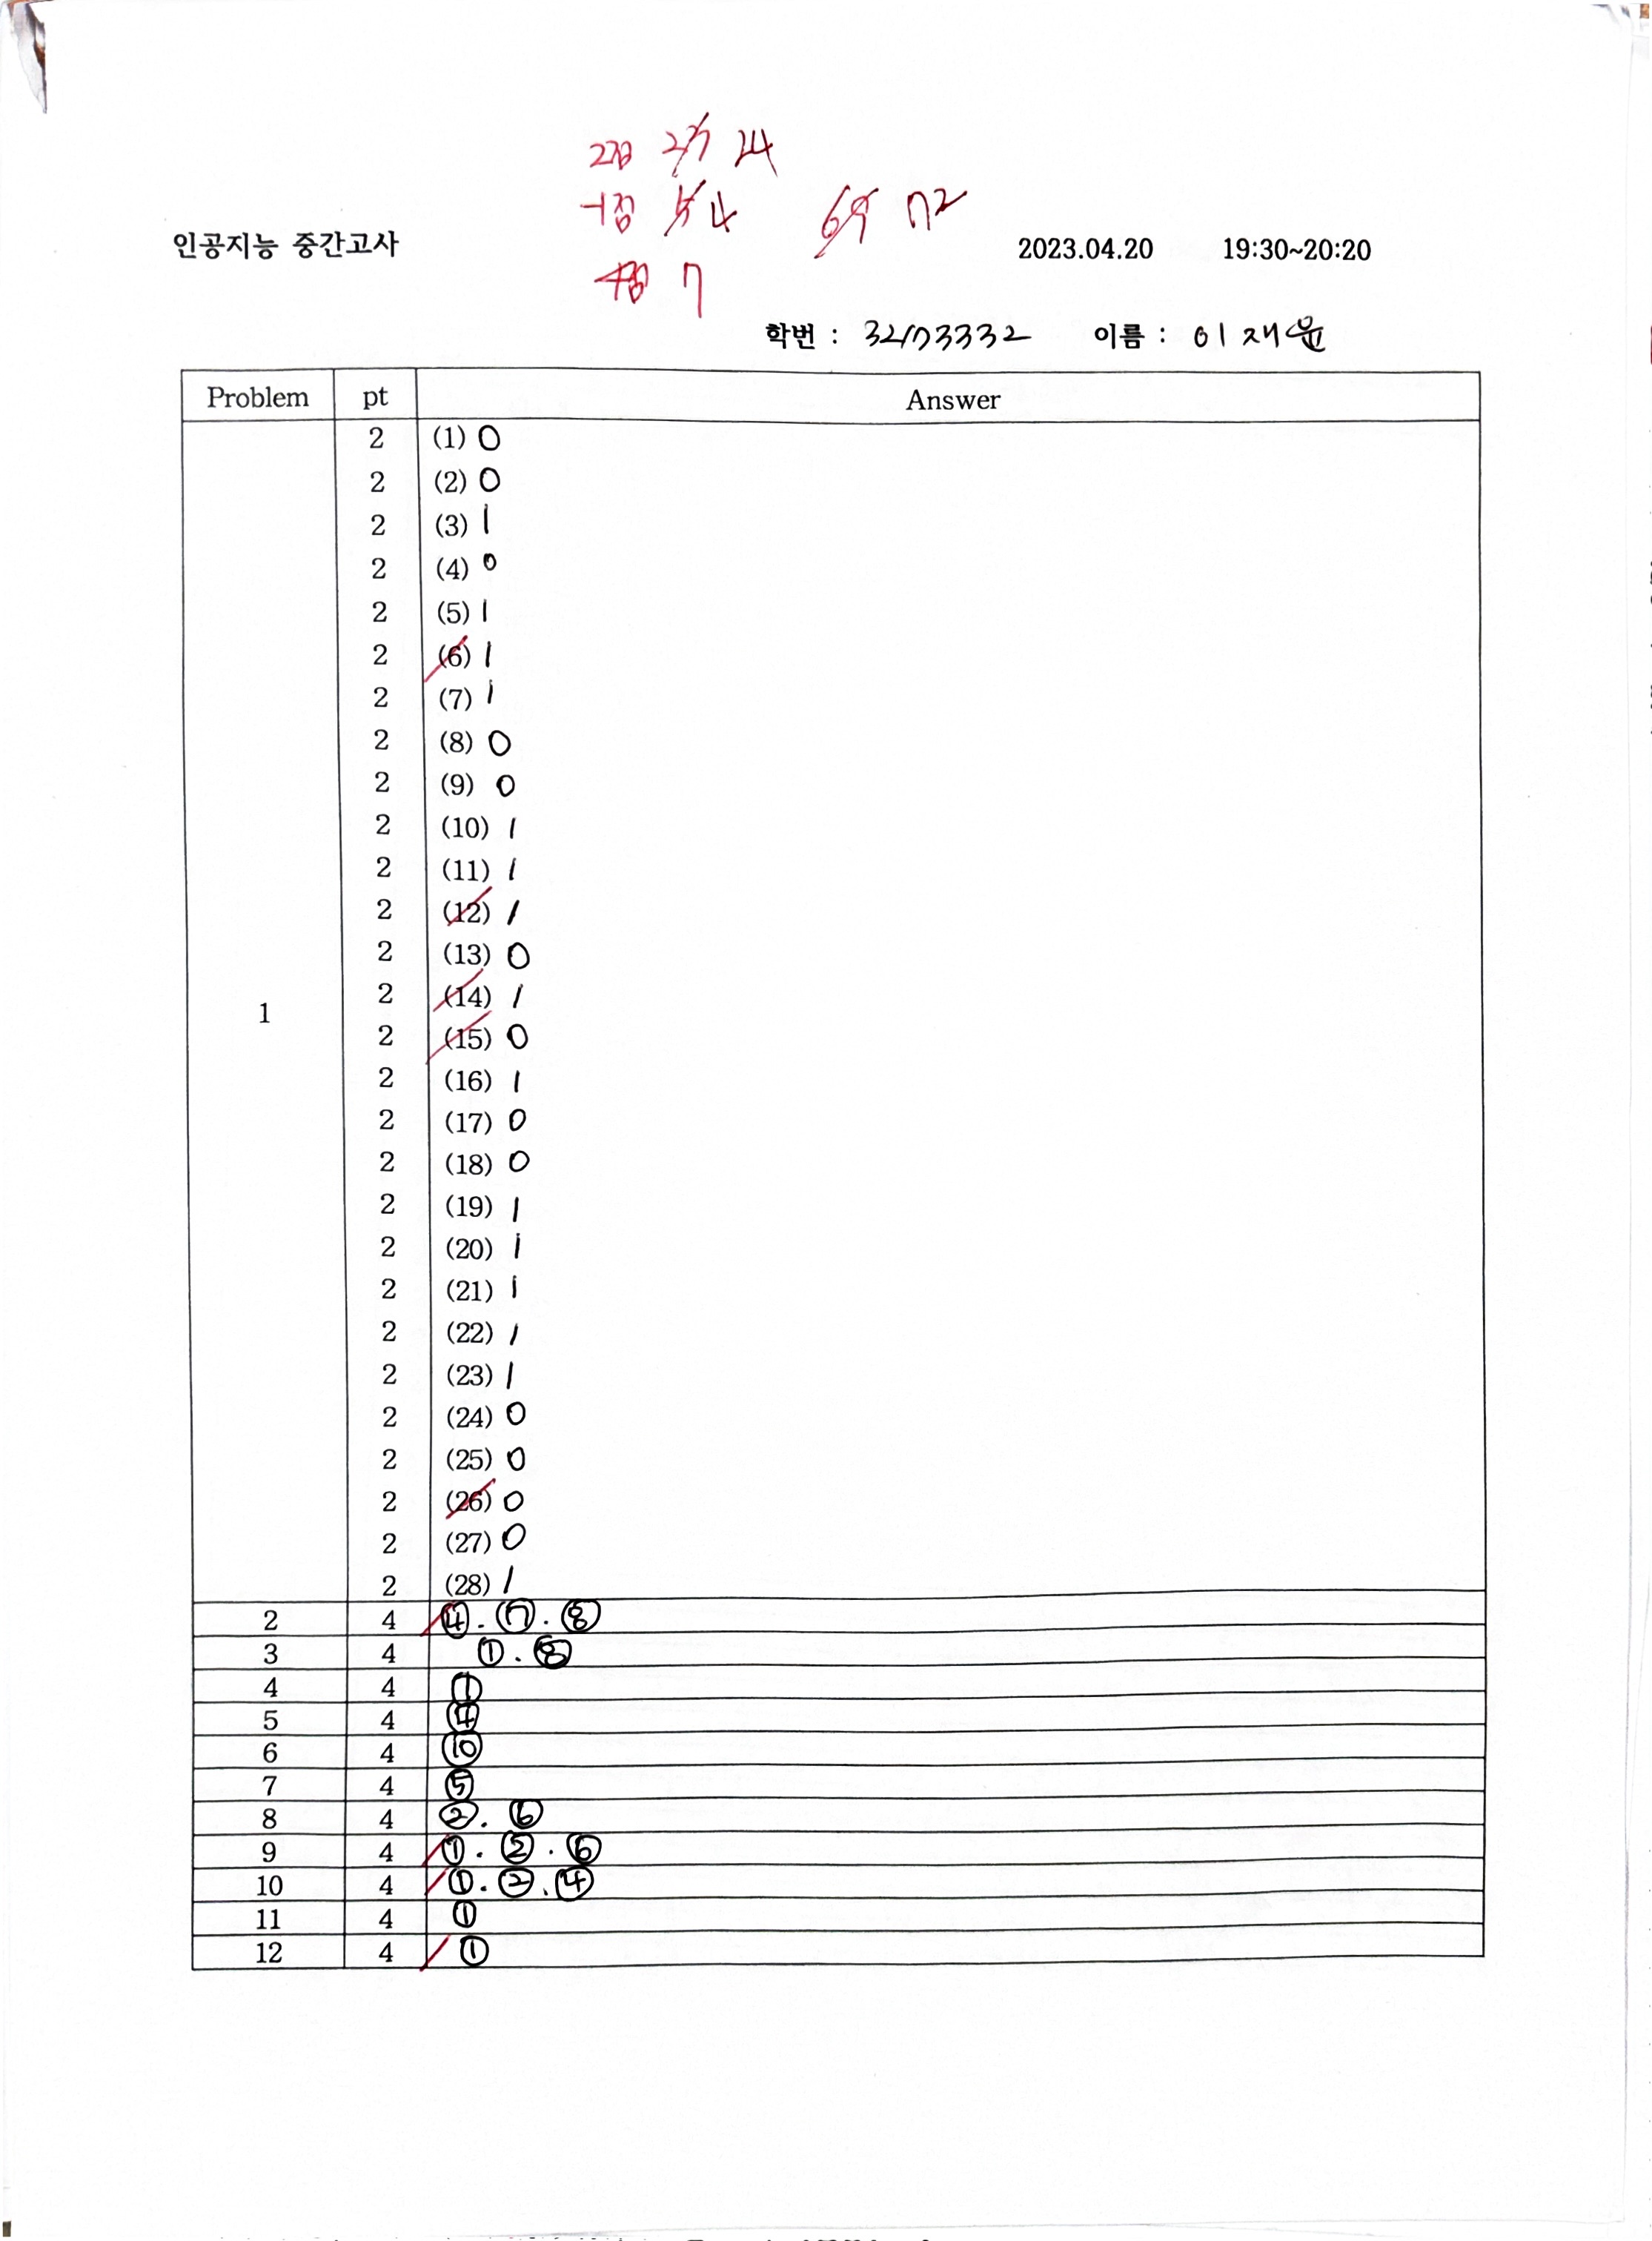 2점 27 24
-1점 5 4 69 72
인공지능 중간고사 2023.04.20 19:30~20:20
4점 7
학번 : 32173332 이름 : 이재윤
Problem pt Answer
2 (1) 0
2 (2) 0
2 (3) 1
2 (4) 0
2 (5) 1
2 (6) 1
2 (7) 1
2 (8) 0
2 (9) 0
2 (10) 1
2 (11) 1
2 (12) 1
2 (13) 0
1 2 (14) 1
2 (15) 0
2 (16) 1
2 (17) 0
2 (18) 0
2 (19) 1
2 (20) 1
2 (21) 1
2 (22) 1
2 (23) 1
2 (24) 0
2 (25) 0
2 (26) 0
2 (27) 0
2 (28) 1
2 4 ④. ⑦. ⑧
3 4 ①. ⑧
4 4 ①
5 4 ④
6 4 ⑩
7 4 ⑤
8 4 ②. ⑥
9 4 ①. ②. ⑥
10 4 ①. ②. ④
11 4 ①
12 4 ①